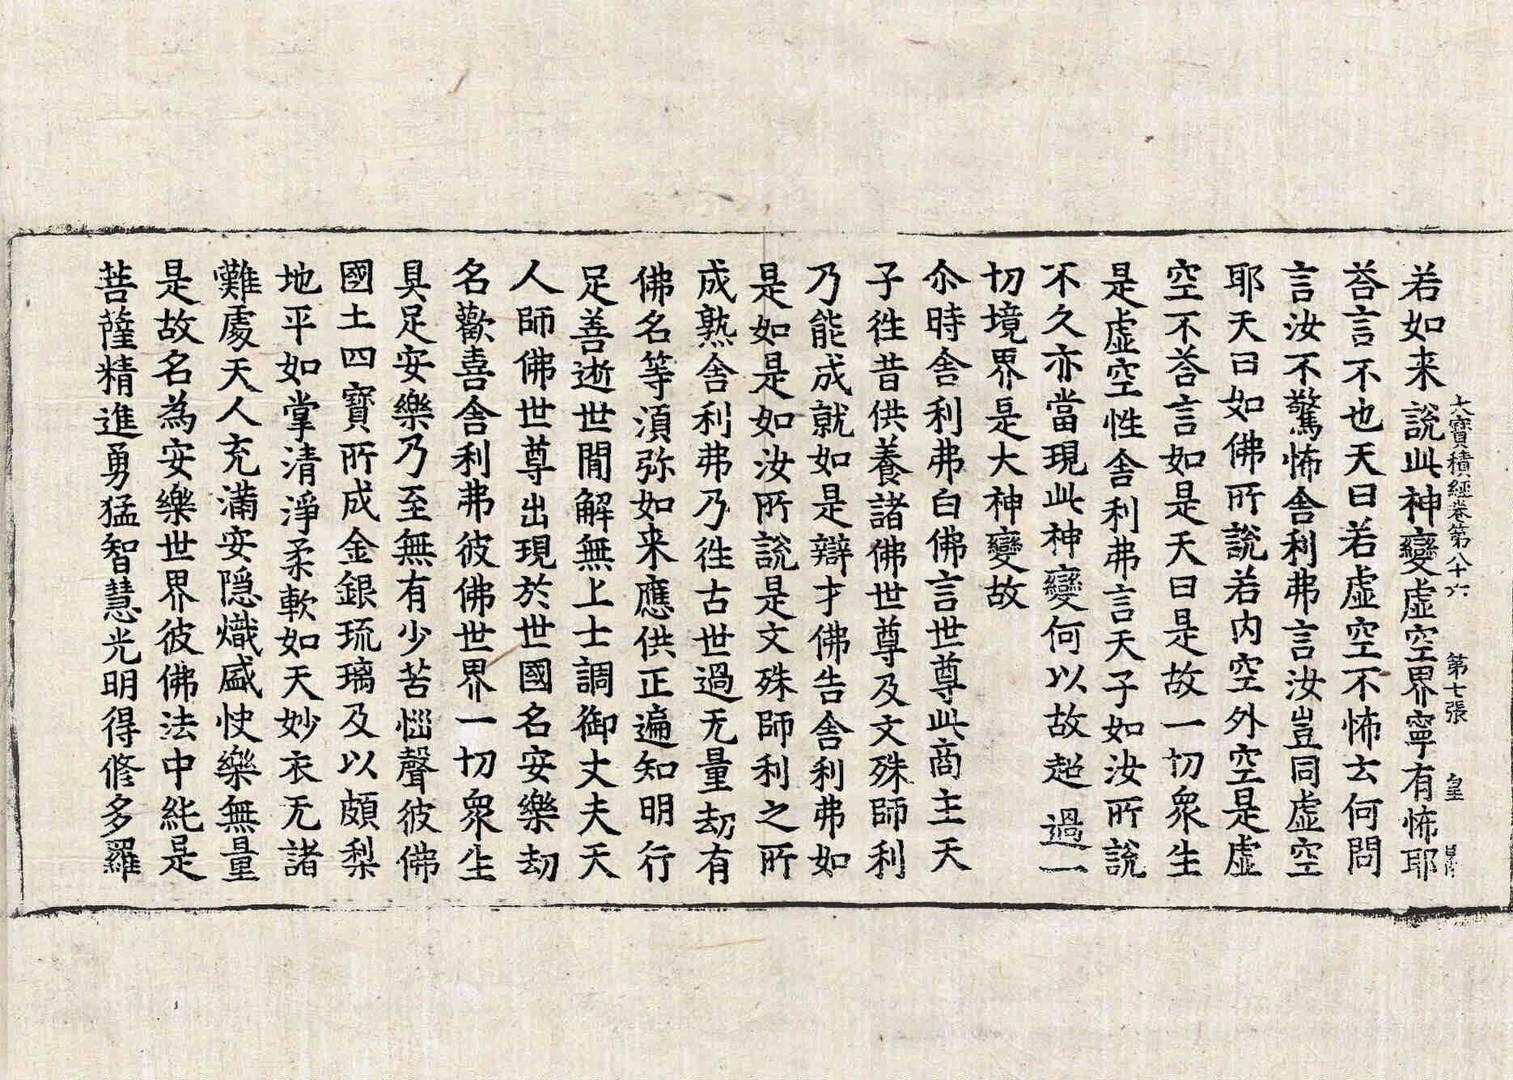 大寶積經卷第八十六 第七張 皇
若如来說此神變虛空界寧有怖耶
荅言不也天曰若虛空不怖云何問
言汝不驚怖舍利弗言汝豈同虛空
耶天曰如佛所說若內空外空是虛
空不荅言如是天曰是故一切衆生
是虛空性舍利弗言天子如汝所說
不久亦當現此神變何以故超過一
切境界是大神變故
尒時舍利弗白佛言世尊此商主天
子徃昔供養諸佛世尊及文殊師利
乃能成就如是辯才佛告舍利弗如
是如是如汝所說是文殊師利之所
成熟舍利弗乃徃古世過无量劫有
佛名等湏弥如来應供正遍知明行
足善逝世間解無上士調御丈夫天
人師佛世尊出現於世國名安樂劫
名歡喜舍利弗彼佛世界一切衆生
具足安樂乃至無有少苦惱聲彼佛
國土四寶所成金銀琉璃及以頗梨
地平如掌清淨柔軟如天妙衣无諸
難處天人充滿安隱熾盛快樂無量
是故名為安樂世界彼佛法中純是
菩薩精進勇猛智慧光明得修多羅